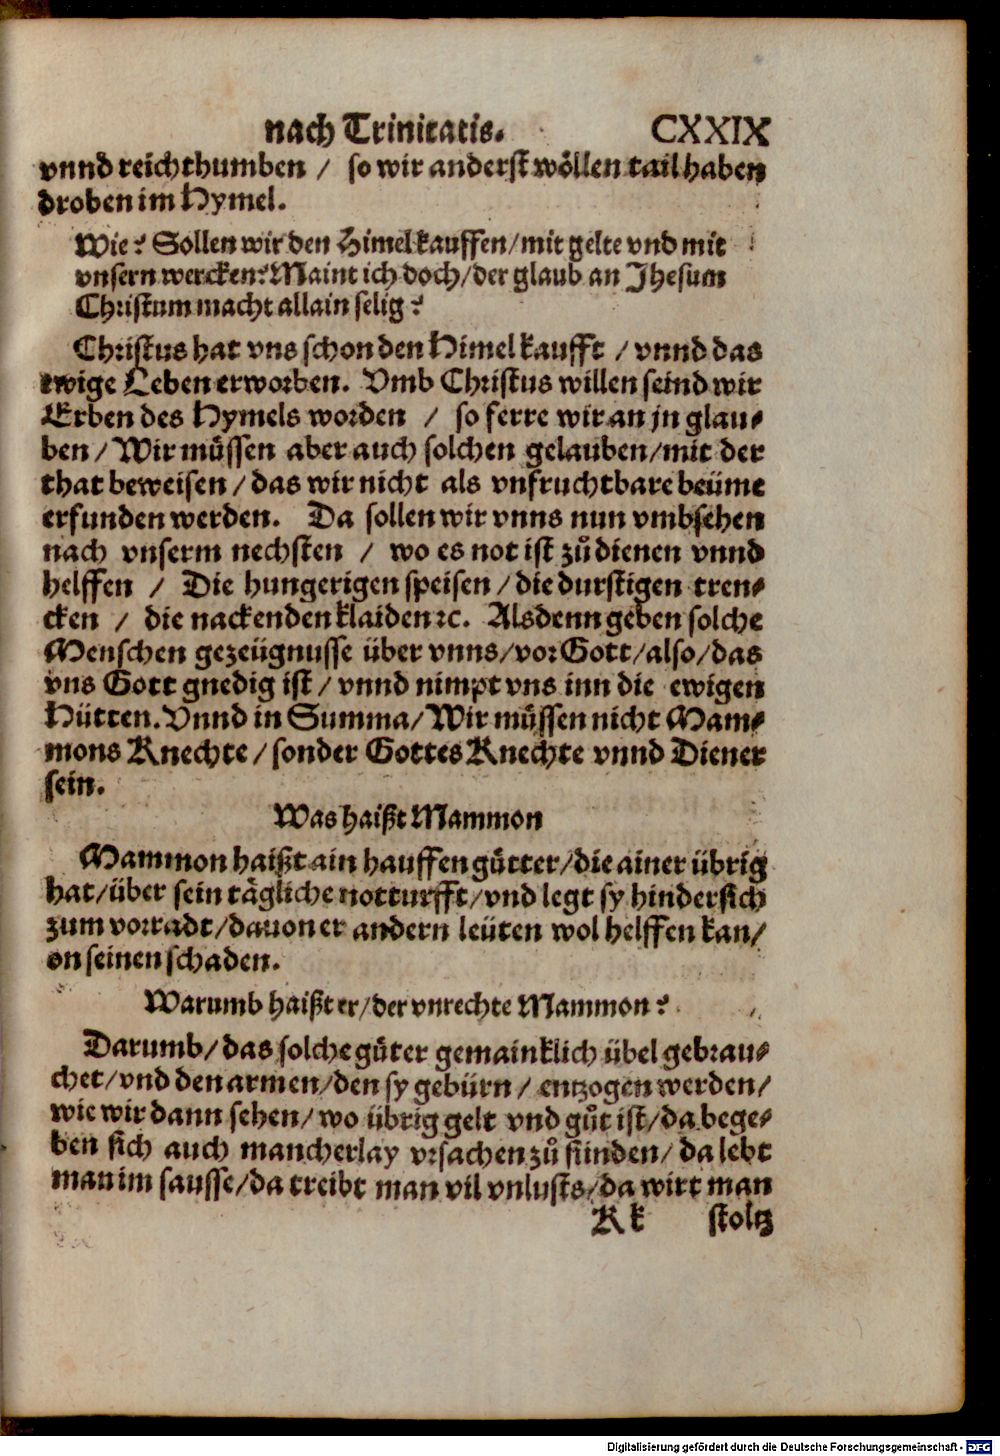 nach Trinitatis. CXXIX
vnnd reichthumben / so wir anderst wöllen tail haben
droben im Hymel.
Wie? Sollen wir den Himel kauffen/mit gelte vnd mit
vnsern wercken? Maint ich doch/der glaub an Jhesum
Christum macht allain selig?
Christus hat vns schon den Himel kaufft / vnnd das
ewige Leben erworben. Vmb Christus willen seind wir
Erben des Hymels worden / so ferre wir an jn glau⸗
ben / Wir müssen aber auch solchen gelauben/mit der
that beweisen / das wir nicht als vnfruchtbare beüme
erfunden werden. Da sollen wir vnns nun vmbsehen
nach vnserm nechsten / wo es not ist zů dienen vnnd
helffen / Die hungerigen speisen / die durstigen tren⸗
cken / die nackenden klaiden ꝛc. Alsdenn geben solche
Menschen gezeügnusse über vnns/vor Gott/also/das
vns Gott gnedig ist / vnnd nimpt vns inn die ewigen
Hütten. Vnnd in Summa/ Wir müssen nicht Mam⸗
mons Knechte / sonder Gottes Knechte vnnd Diener
sein.
Was haißt Mammon
Mammon haißt ain hauffen gütter/die ainer übrig
hat/über sein tägliche notturfft/vnd legt sy hindersich
zum vorradt/dauon er andern leüten wol helffen kan/
on seinen schaden.
Warumb haißt er/der vnrechte Mammon?
Darumb/das solche güter gemainklich übel gebrau⸗
chet/vnd den armen/den sy gebürn / entzogen werden/
wie wir dann sehen/wo übrig gelt vnd gůt ist/da bege⸗
ben sich auch mancherlay vrsachen zů sünden/da lebt
man im sausse/da treibt man vil vnlusts/da wirt man
Kk stoltz
Digitalisierung gefördert durch die Deutsche Forschungsgemeinschaft - DFG